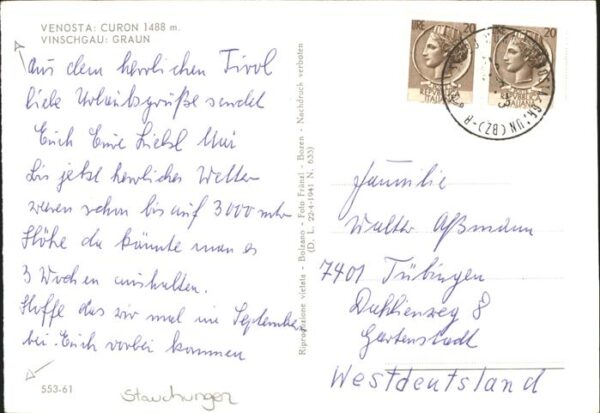 VENOSTA: CURON 1488 m.
VINSCHGAU: GRAUN
aus dem herrlichen Tirol
liebe Urlaubsgrüße sendet
Euch Eure Liebsl Mui
Bis jetzt herrliches Wetter
waren schon bis auf 3000 mtr
Höhe da könnte man es
3 Wochen aushalten.
Hoffe das wir mal im September
bei Euch vorbei kommen
553-61
Stauchungen
Riproduzione vietata - Bolzano - Foto Fränzl - Bozen - Nachdruck verboten
(D. L. 22-4-1941 N. 633)
LIRE 20
REPVBBLICA
ITALIANA
LIRE 20
REPVBBLICA
ITALIANA
(BZ)
Familie
Walter Aßmann
7401 Tübingen
Dahlienweg 8
Gartenstadt
Westdeutsland